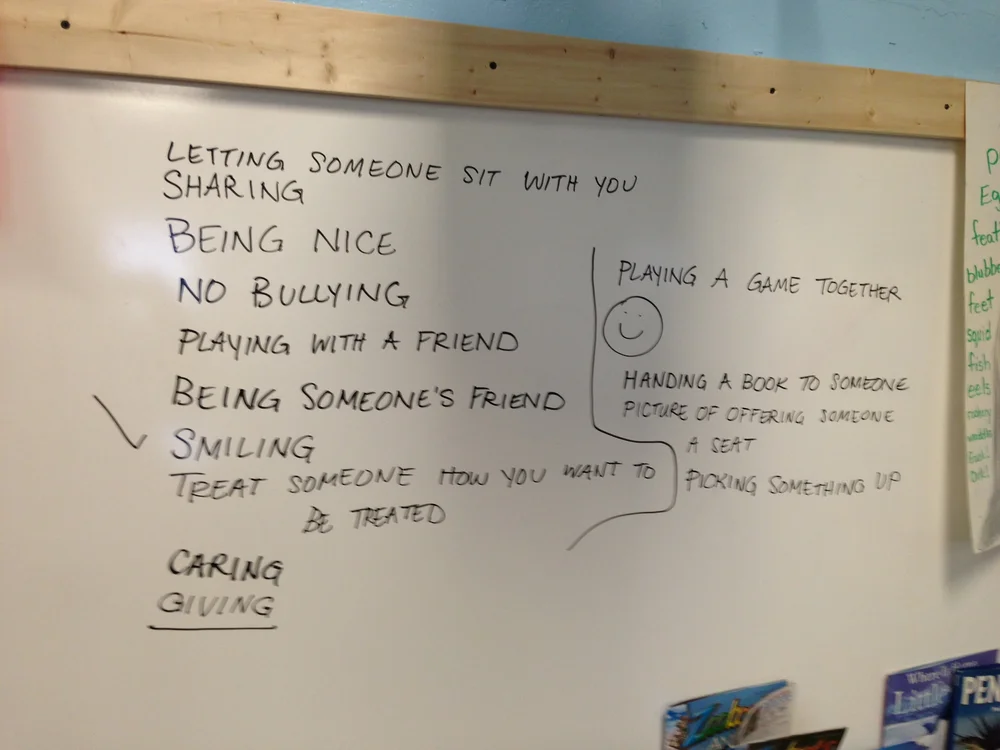 LETTING SOMEONE SIT WITH YOU
SHARING
BEING NICE
NO BULLYING
PLAYING WITH A FRIEND
BEING SOMEONE'S FRIEND
SMILING
TREAT SOMEONE HOW YOU WANT TO
BE TREATED
CARING
GIVING
PLAYING A GAME TOGETHER
HANDING A BOOK TO SOMEONE
PICTURE OF OFFERING SOMEONE
A SEAT
PICKING SOMETHING UP
feet
squid
fish
eels
Little
PEN